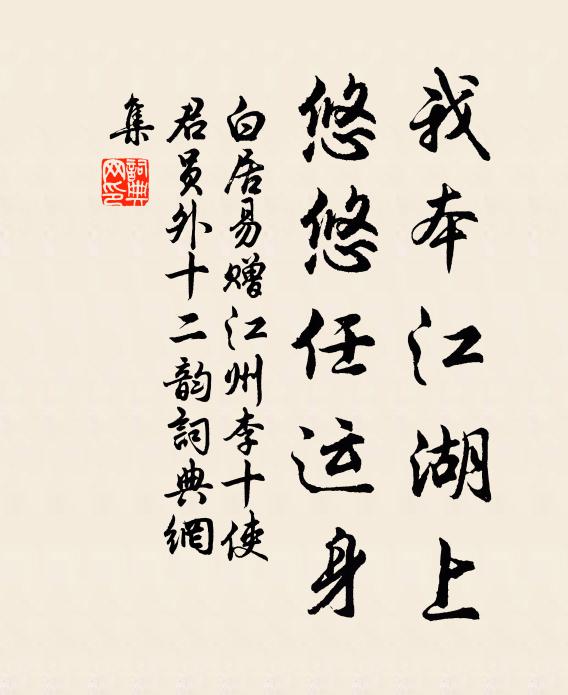 我本江湖上
悠悠任运身
白居易赠江州李十使
君员外十二韵词典網
集
詞典
网印